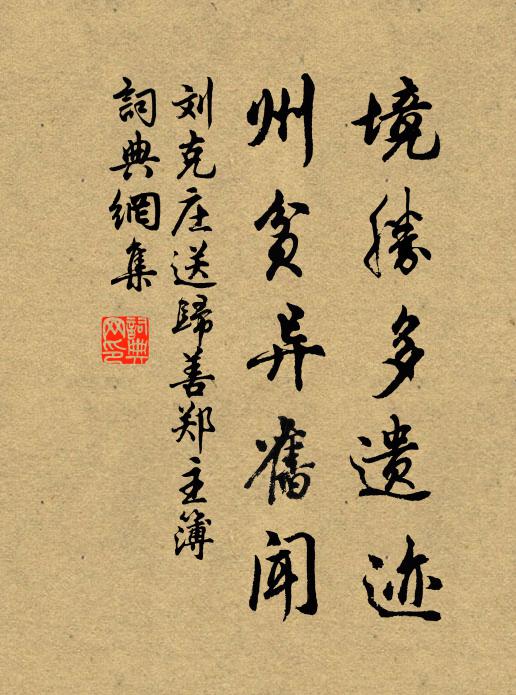 境勝多遗迹
州貧异舊闻
刘克庄送歸善郑主簿
詞典網集
詞典网印